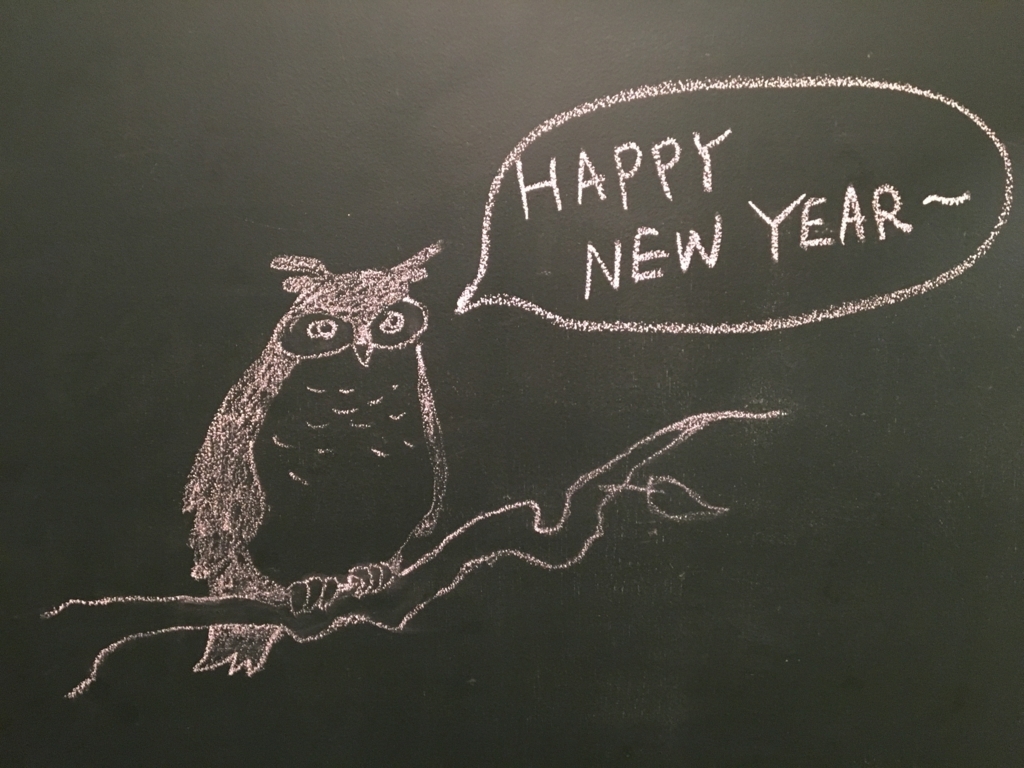 HAPPY
NEW YEAR~